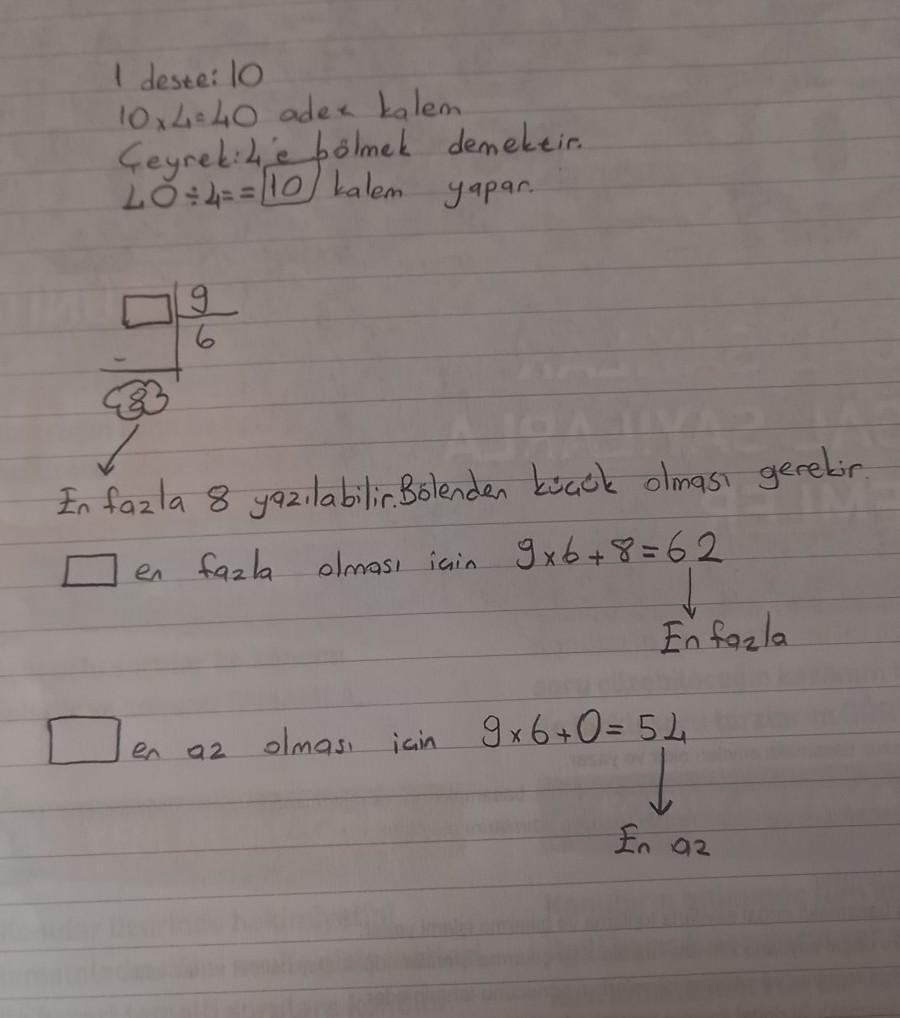 1 deste: 10
10x4=40 adet kalem
Çeyrek: 4'e bölmek demektir.
40÷4==10 kalem yapar.
9
6
-
8
En fazla 8 yazılabilir. Bölenden küçük olması gerekir.
en fazla olması için 9x6+8=62
En fazla
en az olması için 9x6+0=54
En az